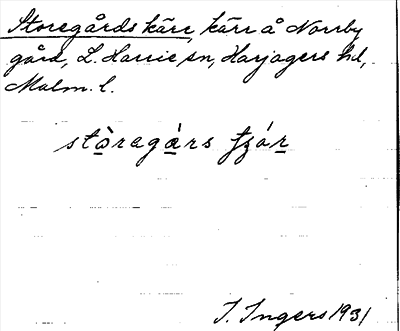 Storegårds kärr, kärr å Norrby
gård, L. Harrie sn, Harjagers hd,
Malm. l.
stòragàrs tʃár
I. Ingers 1931